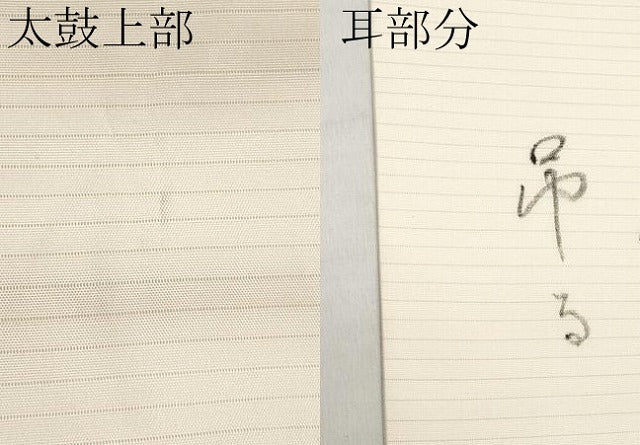 太鼓上部
耳部分
吊る